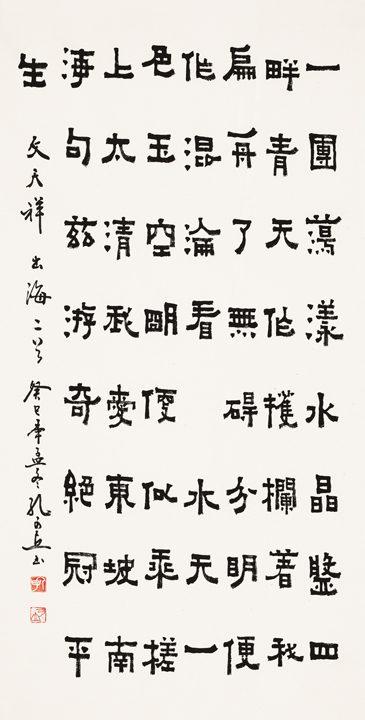 一團蕩漾水晶盤四
畔青天作護欄著我
扁舟了無礙分明便
作混淪看 水天一
色玉空明便似乘槎
上太清我愛東坡南
海句茲游奇絕冠平
生
文天祥 出海二首 癸巳年孟冬孔 書